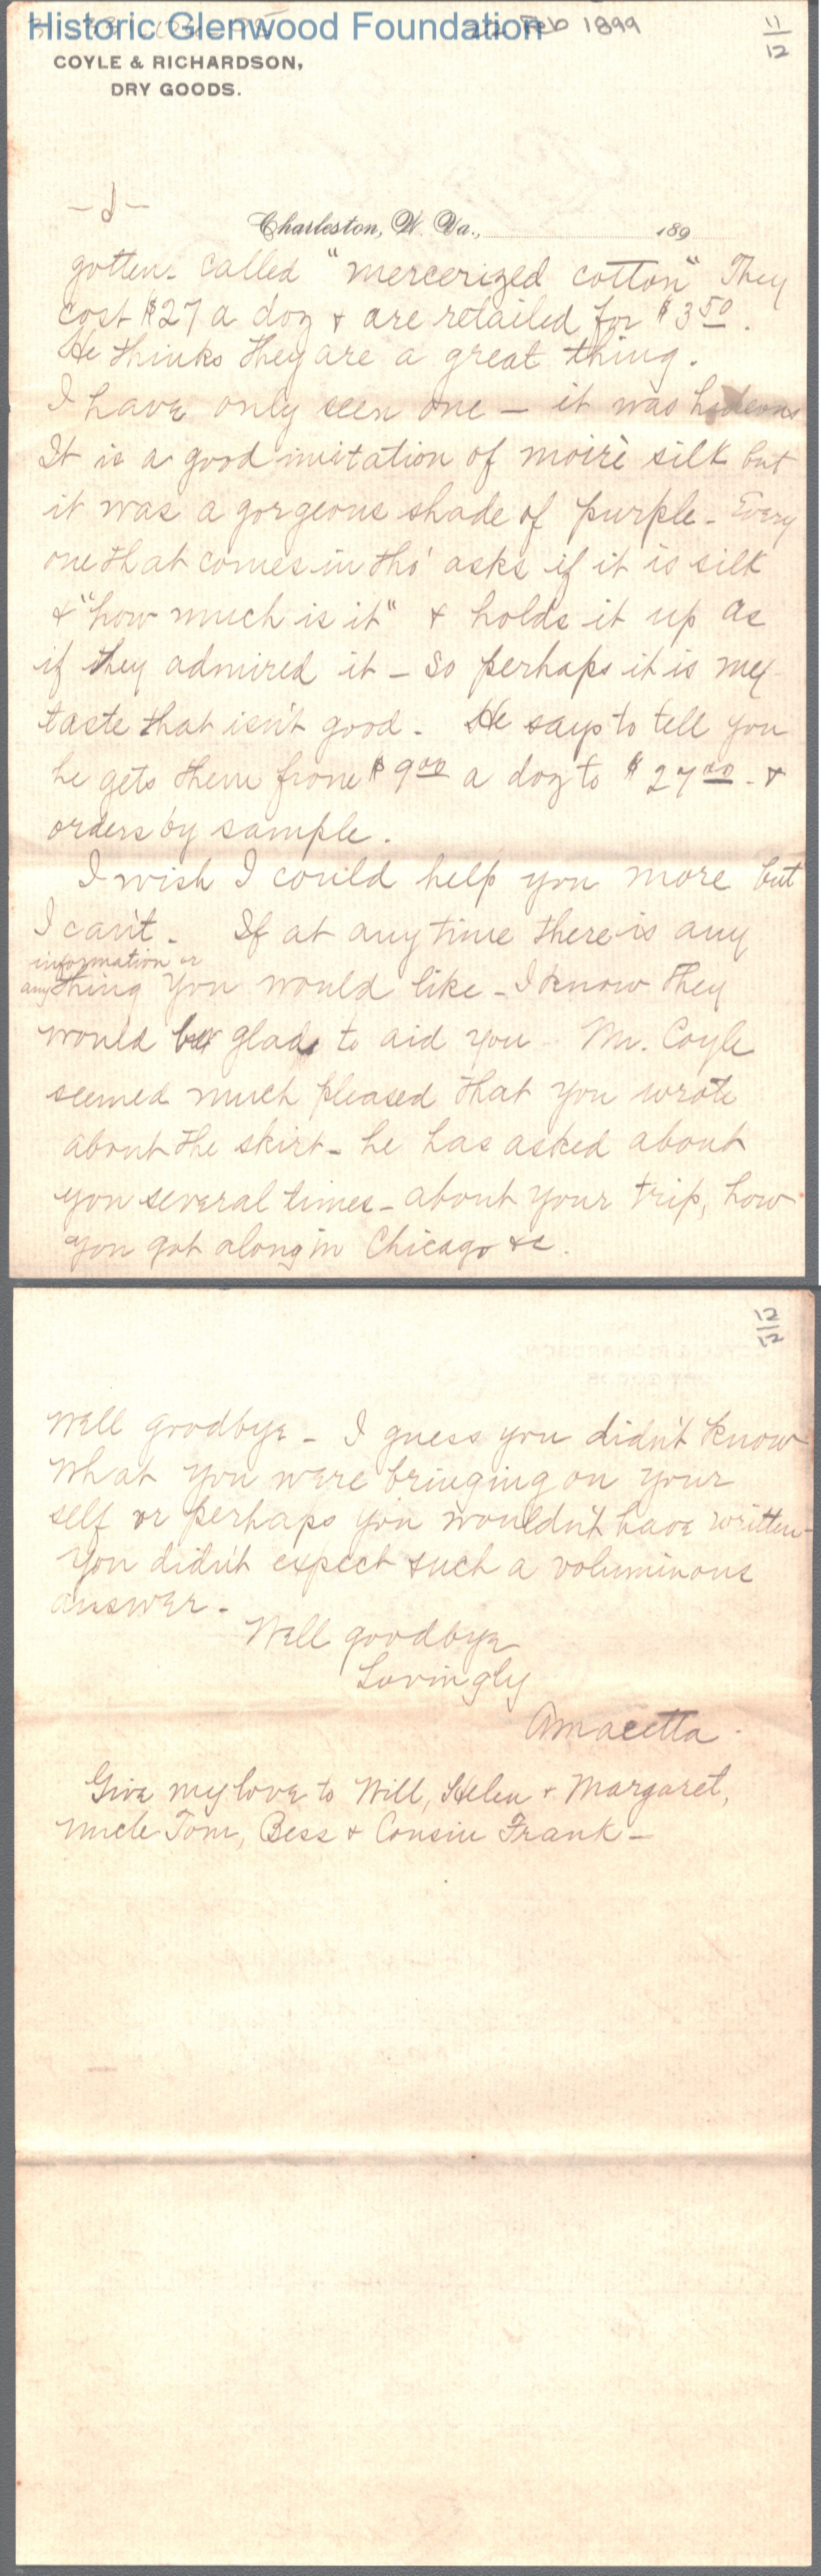 Historic Glenwood Foundation
Feb 1899
11/12
COYLE & RICHARDSON,
DRY GOODS.
Charleston, W. Va., 189
gotten - called "mercerized cotton" They
cost $27 a doz & are retailed for $3 50.
He thinks they are a great thing.
I have only seen one — it was hideous
It is a good imitation of moirè silk but
it was a gorgeous shade of purple - Every
one that comes in tho' asks if it is silk
& "how much is it" & holds it up as
if they admired it - So perhaps it is my
taste that isn't good - He says to tell you
he gets them from $9 00 a doz to $27 00 - &
orders by sample.
I wish I could help you more but
I can't - If at any time there is any
information or
anything you would like - I know they
would be glad to aid you - Mr. Coyle
seemed much pleased that you wrote
about the skirt - he has asked about
you several times - about your trip, how
you got along in Chicago &c.
12/12
Well goodbye - I guess you didn't know
what you were bringing on your
self or perhaps you wouldn't have written -
You didn't expect such a voluminous
answer -
Well goodbye
Lovingly
Amacetta -
Give my love to Will, Helen & Margaret,
Uncle Tom, Bess & Cousin Frank -